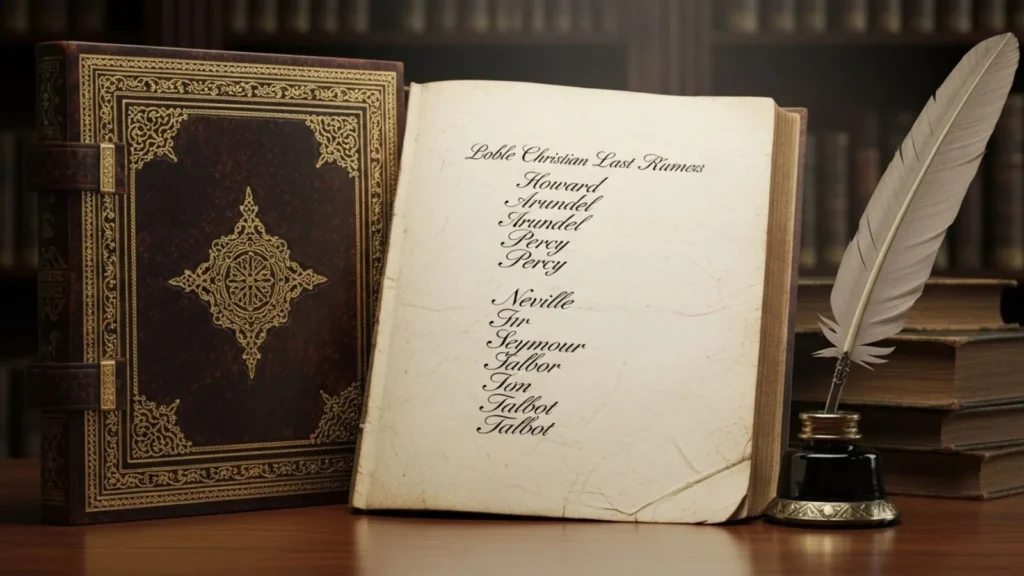 Loble Christian Last Rumers
Howard
Arundel
Arundel
Percy
Percy
Neville
Fır
Seymour
Falbor
Ton
Talbot
Talbot